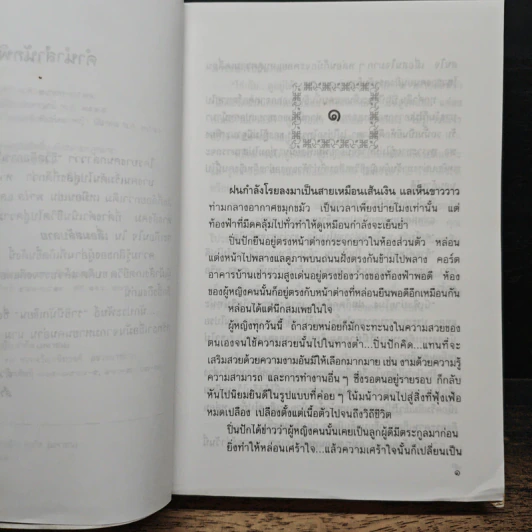 คำนำสำนักพิ
๑
ฝนกำลังโรยลงมาเป็นสายเหมือนเส้นเงิน แลเห็นขาววาว
ท่ามกลางอากาศขมุกขมัว เป็นเวลาเพียงบ่ายโมงเท่านั้น แต่
ท้องฟ้าที่มืดคลุ้มไปทั่วทำให้ดูเหมือนกำลังจะเย็นย่ำ
ปิ่นปักยืนอยู่ตรงหน้าต่างกระจกยาวในห้องส่วนตัว หล่อน
แต่งหน้าไปพลางแลดูภาพบนถนนฝั่งตรงข้ามไปพลาง คอร์ต
อาคารบ้านเช่ารวมสูงเด่นอยู่ตรงช่องว่างของท้องฟ้าพอดี ห้อง
ของผู้หญิงคนนั้นก็อยู่ตรงกับหน้าต่างที่หล่อนยืนพอดีอีกเหมือนกัน
หล่อนได้แต่นึกสมเพชในใจ
ผู้หญิงทุกวันนี้ ถ้าสวยหน่อยก็มักจะทะนงในความสวยของ
ตนเองจนใช้ความสวยนั้นไปในทางต่ำ...ปิ่นปักคิด...แทนที่จะ
เสริมสวยด้วยความงามอันมีให้เลือกมากมาย เช่น งามด้วยความรู้
ความสามารถ และการทำงานอื่น ๆ ซึ่งรอตนอยู่รายรอบ ก็กลับ
หันไปนิยมยินดีในรูปแบบที่ค่อย ๆ โน้มน้าวตนไปสู่สิ่งที่ฟุ้งเฟ้อ
หมดเปลือง เปลืองตั้งแต่เนื้อตัวไปจนถึงวิถีชีวิต
ปิ่นปักได้ข่าวว่าผู้หญิงคนนั้นเคยเป็นลูกผู้ดีมีตระกูลมาก่อน
ยิ่งทำให้หล่อนเศร้าใจ...แล้วความเศร้าใจนั้นก็เปลี่ยนเป็น
๑